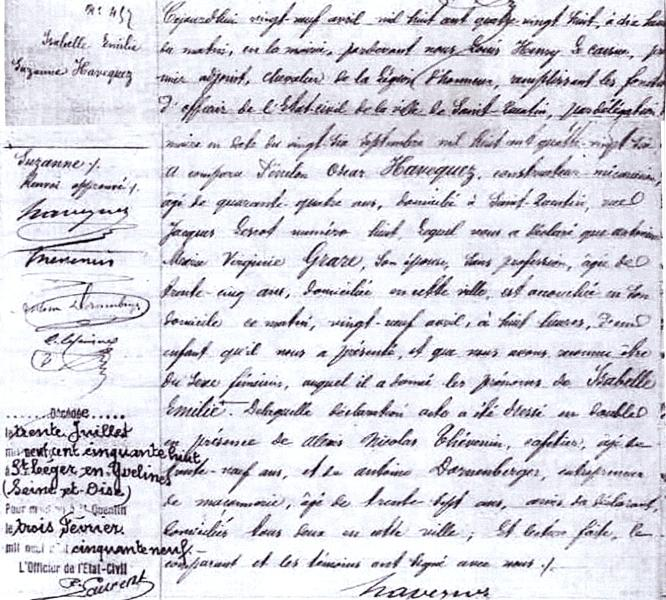 N° 457
Isabelle Emilie
Suzanne Havequez
Suzanne ./.
Renvoi approuvé ./.
Havequez
Thévenin
Antoine Dornenberger
Décédée
le trente Juillet
mil neuf cent cinquante huit
à St Leger en Yvelines
(Seine et Oise)
Pour mention St Quentin
le trois Février
mil neuf cent cinquante neuf
L'Officier de l'État-Civil
Laurent
Cejourd'hui vingt-neuf avril mil huit cent quatre-vingt huit, à dix heures
du matin, en la mairie, pardevant nous Louis Henry Lecasse, pre
mier adjoint, chevalier de la Légion d'honneur, remplissant les fonctions
d'officier de l'État civil de la ville de Saint-Quentin, par délégation
maire en date du vingt-six septembre mil huit cent quatre-vingt six
A comparu Oscar Havequez, constructeur mécanicien,
âgé de quarante-quatre ans, domicilié à Saint-Quentin, rue
Jacques Lescot numéro huit, lequel nous a déclaré que Antoinette
Marie Virginie Graze, son épouse, sans profession, âgée de
trente-cinq ans, domiciliée en cette ville, est accouchée en son
domicile ce matin, vingt-neuf avril, à huit heures, d'un
enfant qu'il nous a présenté, et que nous avons reconnu être
du sexe féminin, auquel il a donné les prénoms de Isabelle
Emilie. De laquelle déclaration acte a été dressé en double
en présence de Alexis Nicolas Thévenin, cafetier, âgé de
trente-neuf ans, et de Antoine Dornenberger, entrepreneur
de maçonnerie, âgé de trente sept ans, amis du déclarant,
domiciliés tous deux en cette ville ; Et lecture faite, le
comparant et les témoins ont signé avec nous ./.
Havequez